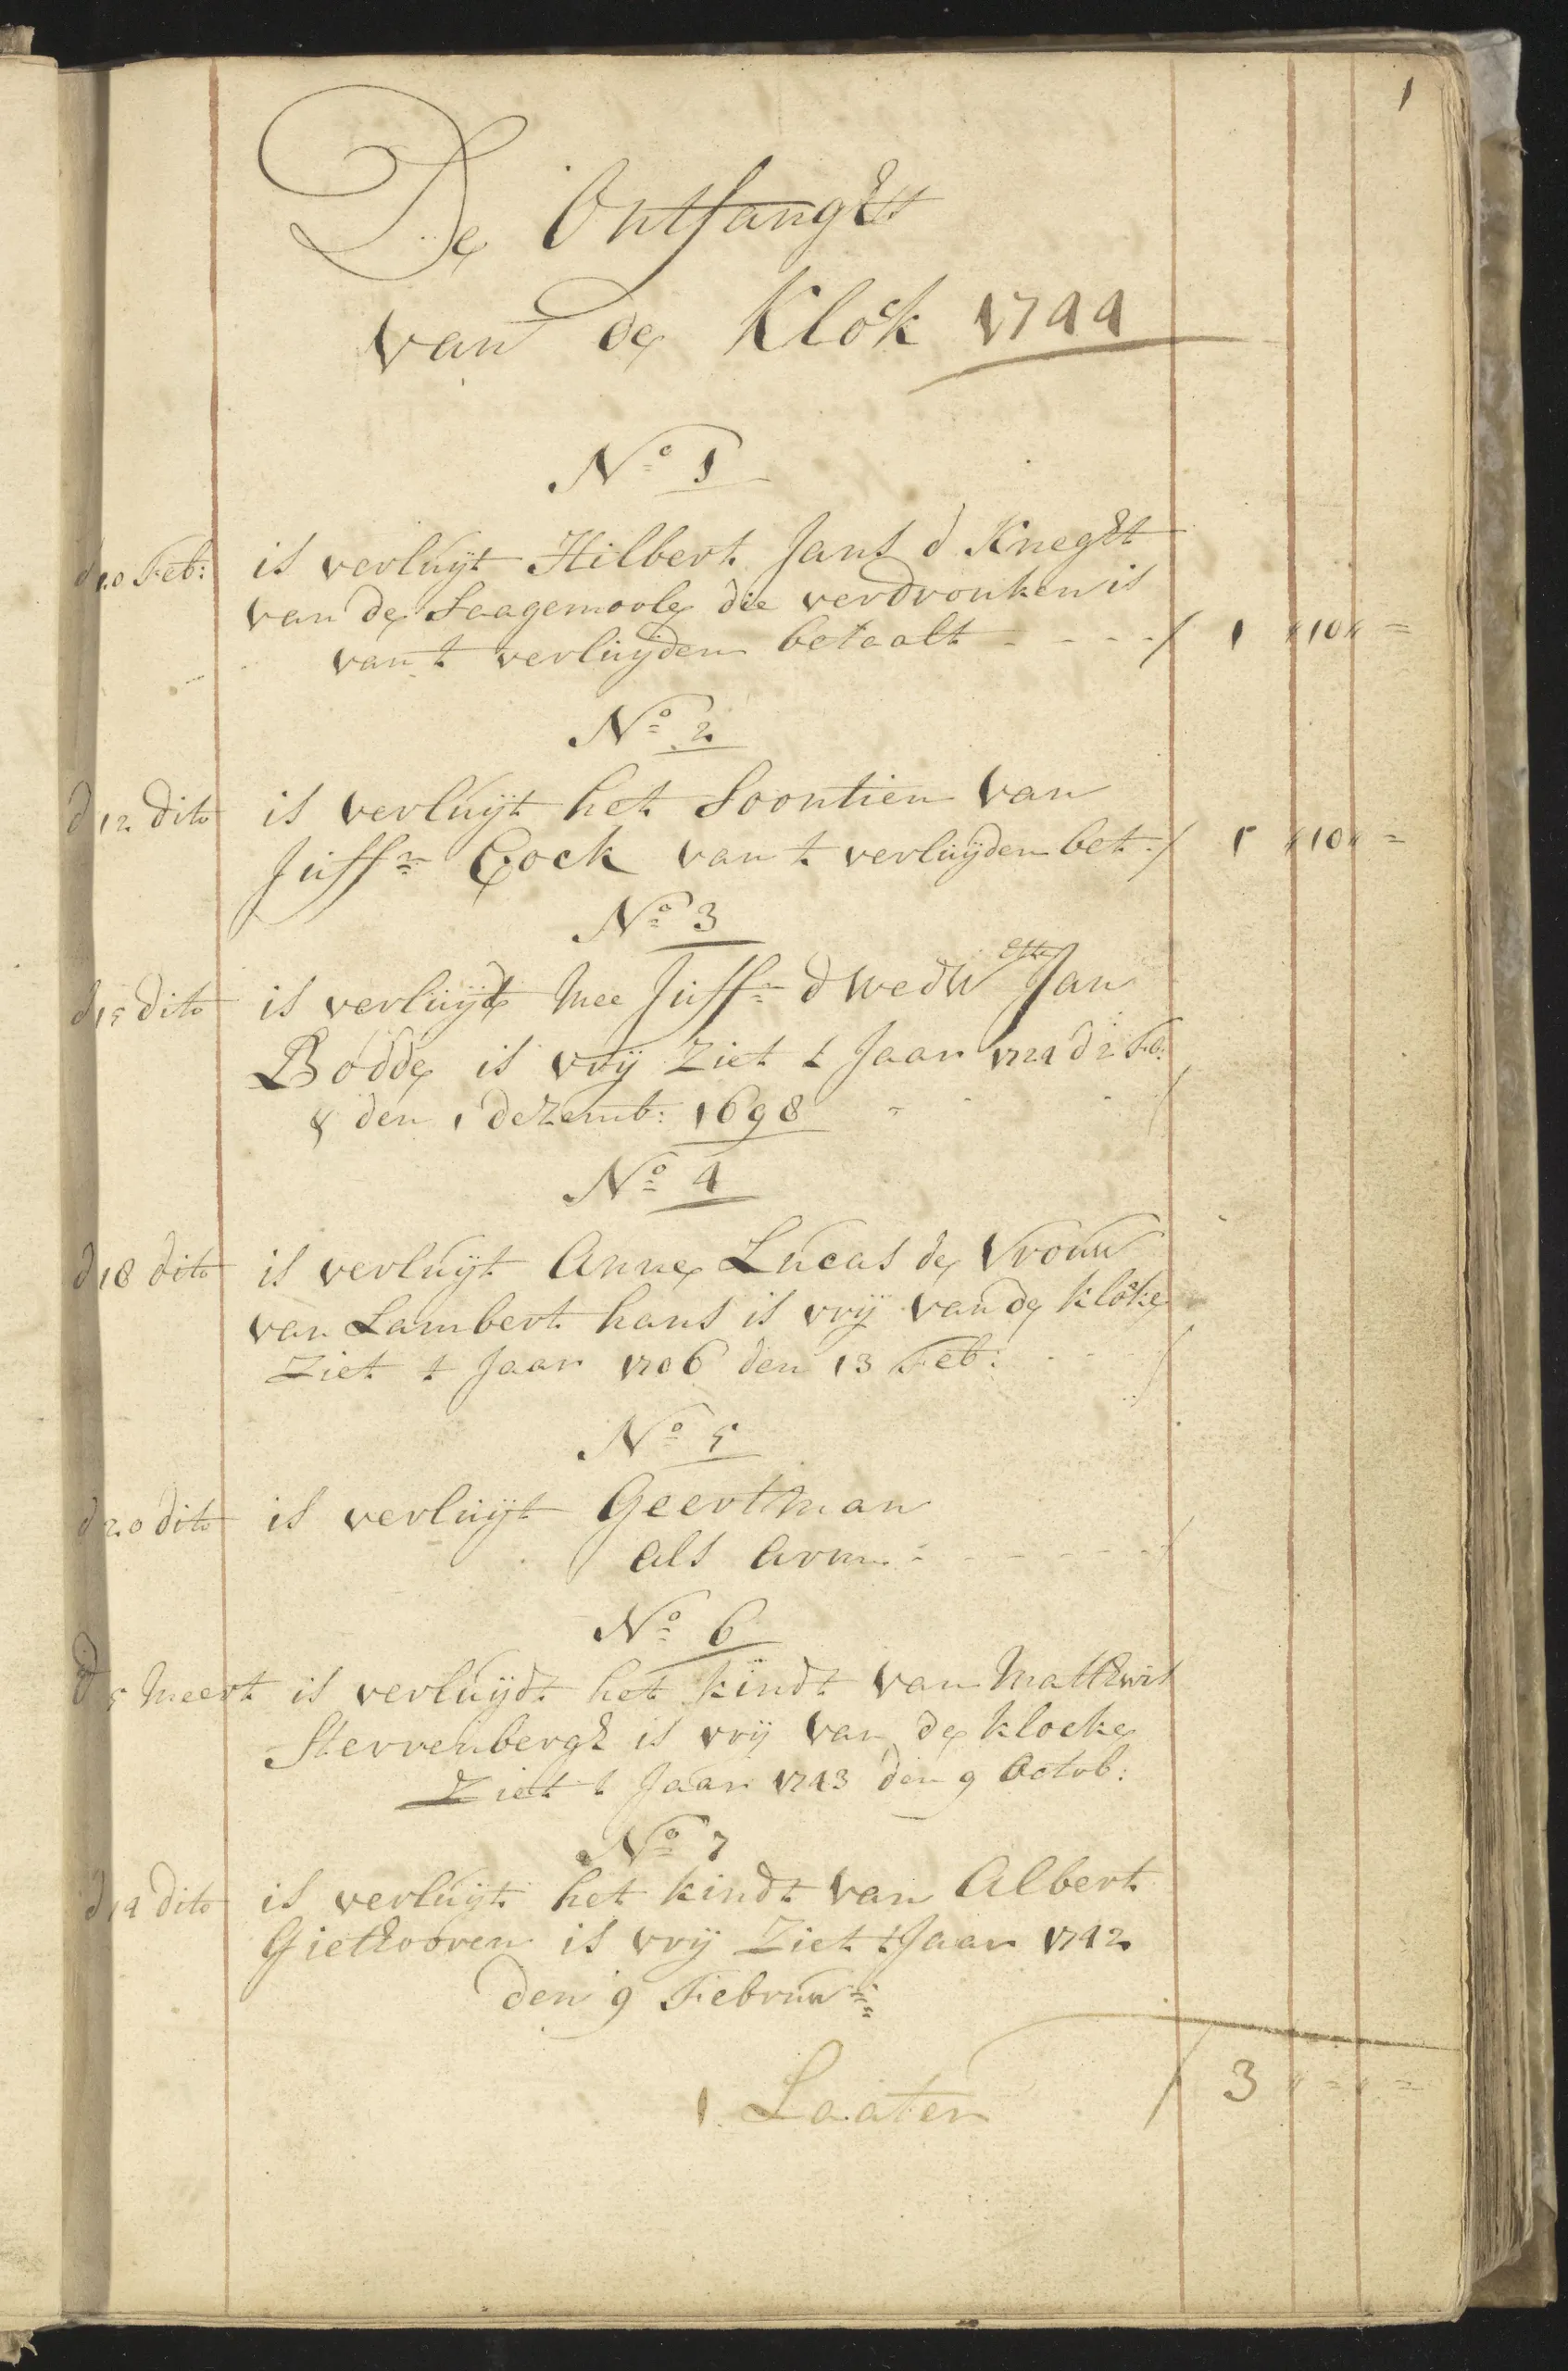 1
De Ontfanght
van de Klok 1744
No 1
d 10 Feb: is verluijt Hilbert Jans d Kneght
van de Saagemoole die verdronken is
van t verluijden betaalt - - - - / 1 " 10 " =
No 2
d 12 dito is verluijt het Soontien van
Juffr Cock van t verluijden bet / 1 " 10 " =
No 3
d 15 dito is verluijt Mee Juffr d wedw Jan
Bodde is vrij Ziet t Jaar 1724 d 2 Fe:
& den 1 dezemb: 1698
No 4
d 18 dito is verluijt Anne Lucas de Vrouw
van Lambert hans is vrij van de kloke
Ziet t Jaar 1706 den 13 Feb: - - - /
No 5
d 20 dito is verluijt Geert Man
als Arm - - - - - - /
No 6
d 5 Meert is verluijdt het kindt van Matthwis
Sterrenbergh is vrij van de klocke
Ziet t Jaar 1743 den 9 Octob:
No 7
d 14 dito is verluijt het kindt van Albert
Giethooren is vrij Ziet t Jaar 1742
den 9 Februw
1 Laaten / 3 " = " =